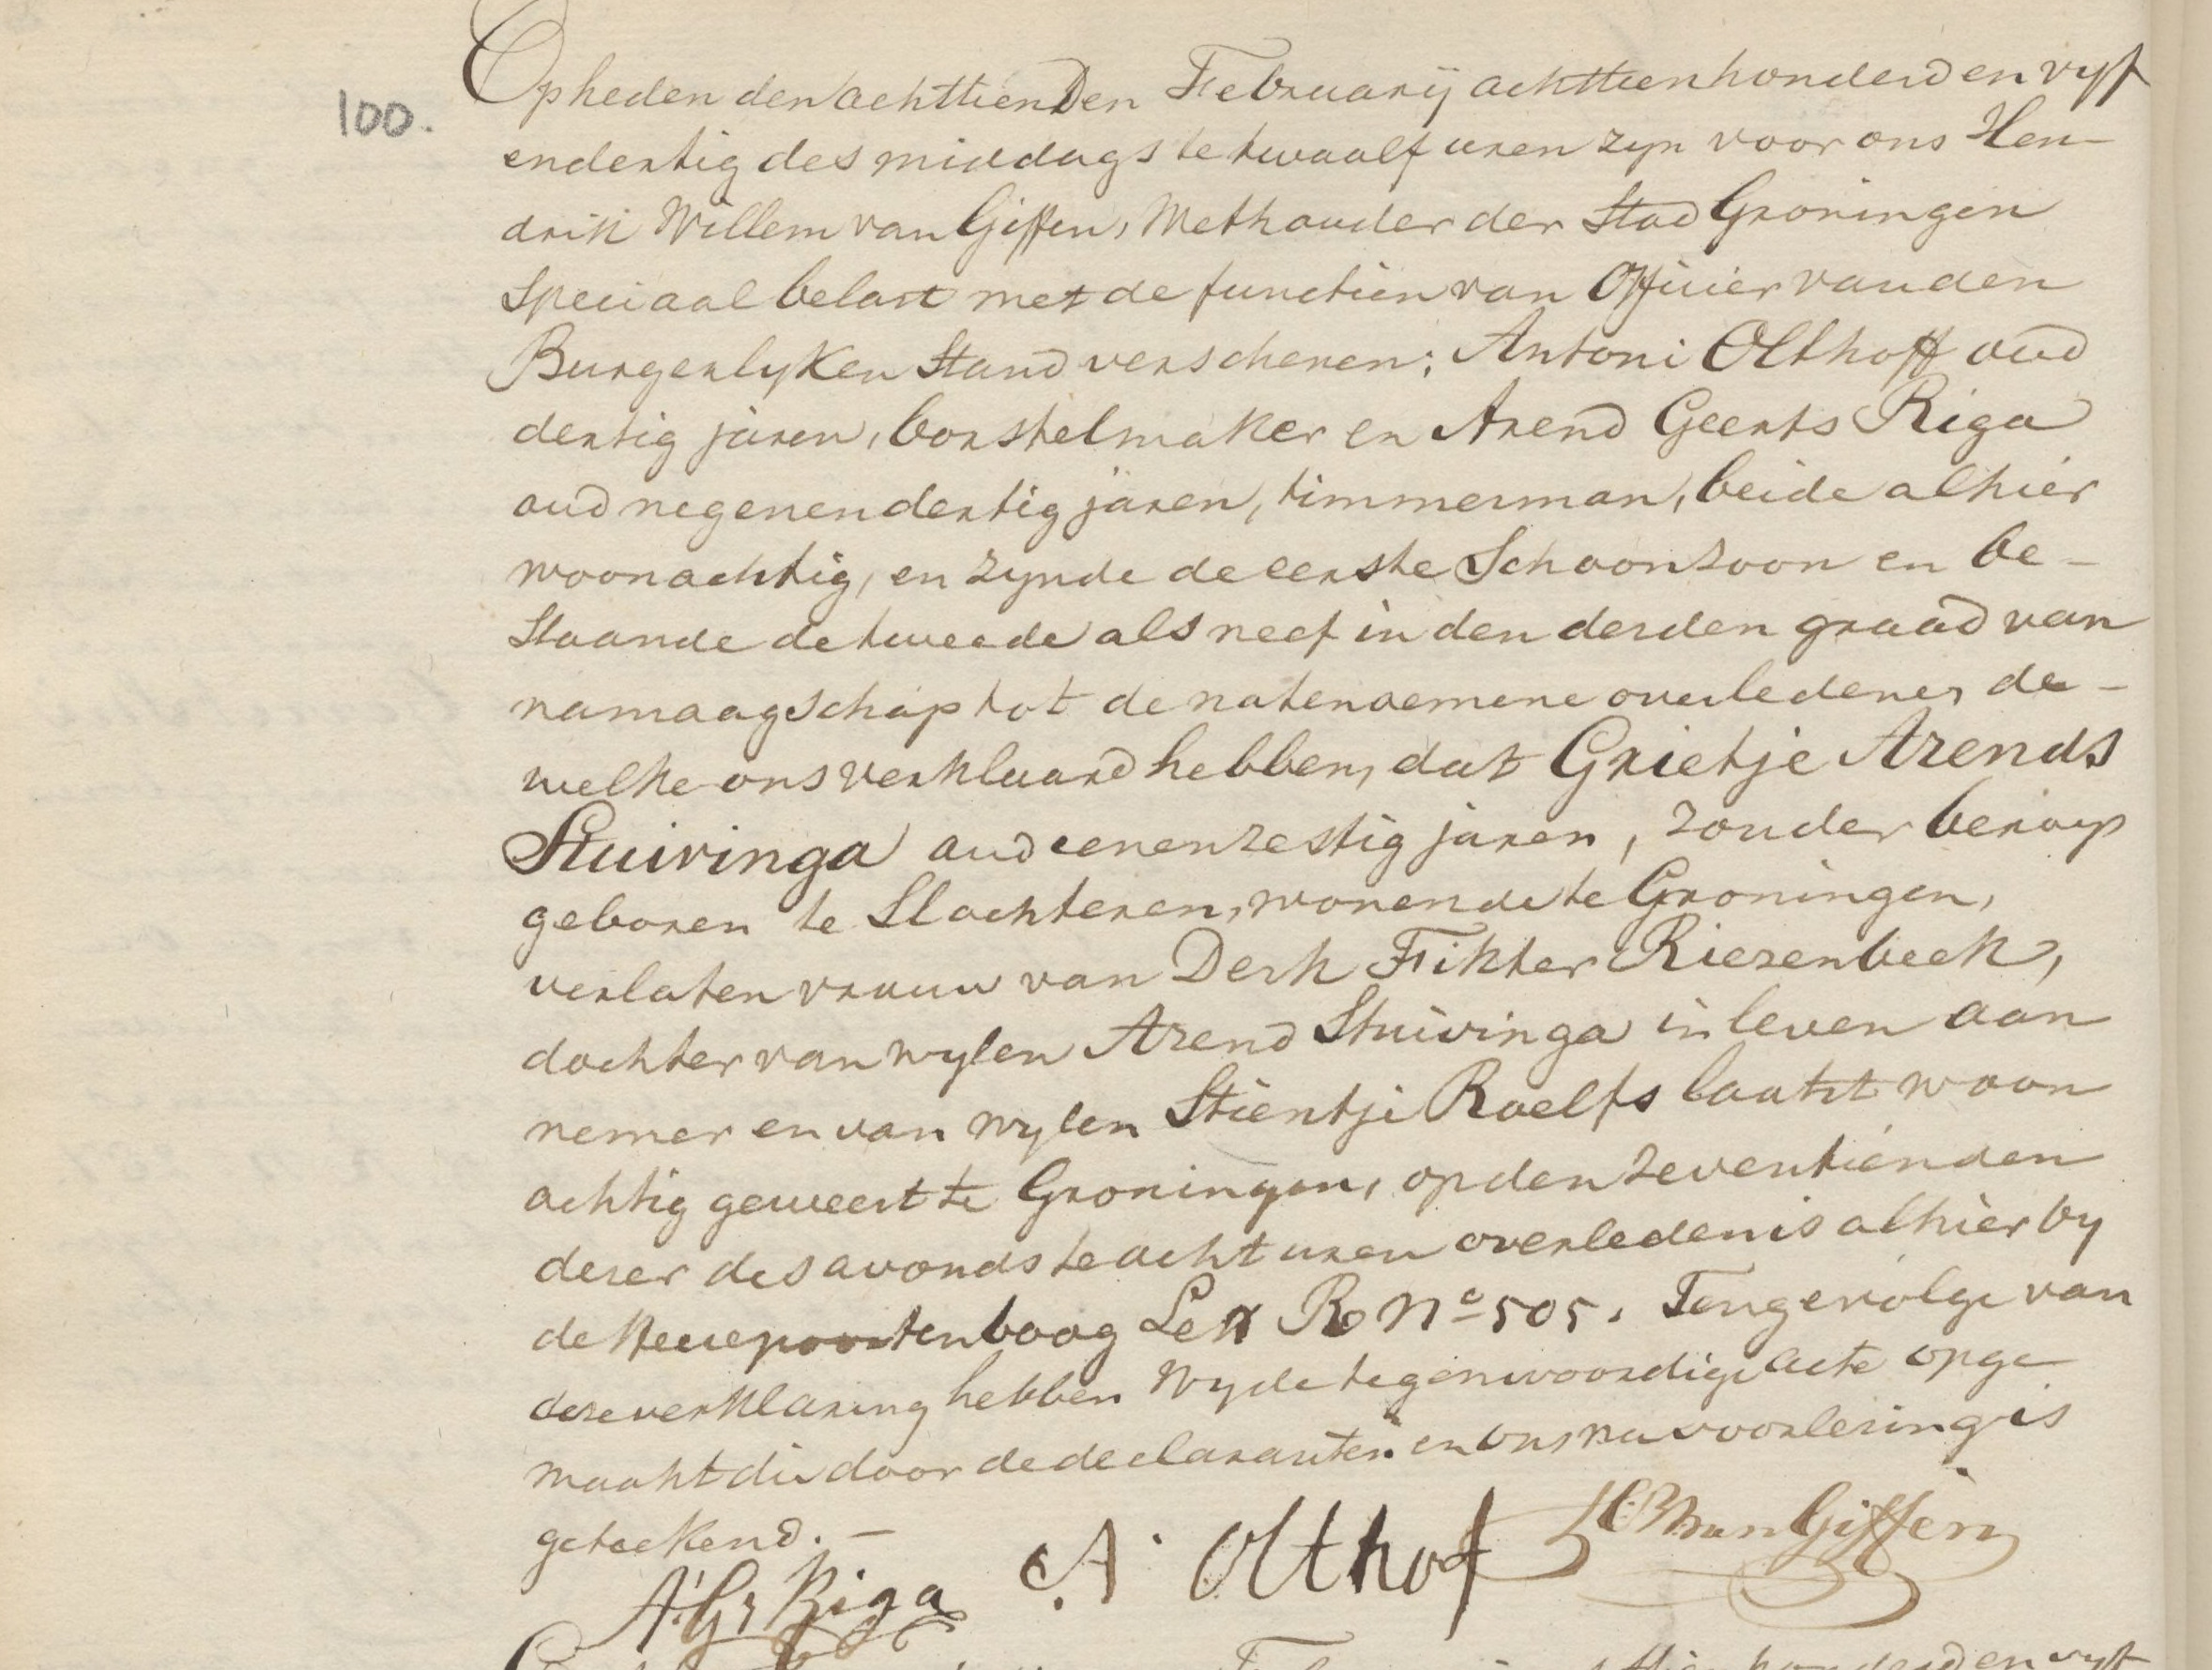 100.
Op heden den achttienden February achttienhonderd en vyf
endertig des middags te twaalf uren zyn voor ons Hen-
drik Willem van Giffen, Wethouder der Stad Groningen
Speciaal belast met de functien van Officier van den
Burgerlyken Stand verschenen; Antoni Olthoff oud
dertig jaren, borstelmaker en Arend Geerts Riga
oud negenendertig jaren, timmerman, beide alhier
woonachtig, en zynde de eerste Schoonzoon en be-
staande de tweede als neef in den derden graad van
namaagschap tot de natenoemene overledene, de-
welke ons verklaard hebben, dat Grietje Arends
Stuivinga oud eenenzestig jaren, zonder beroep
geboren te Slochteren, wonende te Groningen,
verlaten vrouw van Derk Fikter Riezenbeek,
dochter van wylen Arend Stuivinga in leven aan
nemer en van wylen Stientje Roelfs laatst woon
achtig geweest te Groningen, op den zeventienden
dezer des avonds te acht uren overleden is alhier by
de Steenepoortenboog Letr R No 505. Tengevolge van
deze verklaring hebben Wy de tegenwoordige acte opge
maakt die door de declaranten en ons na voorlezing is
geteekend. —
A. Gs Riga A. Olthof HW van Giffen